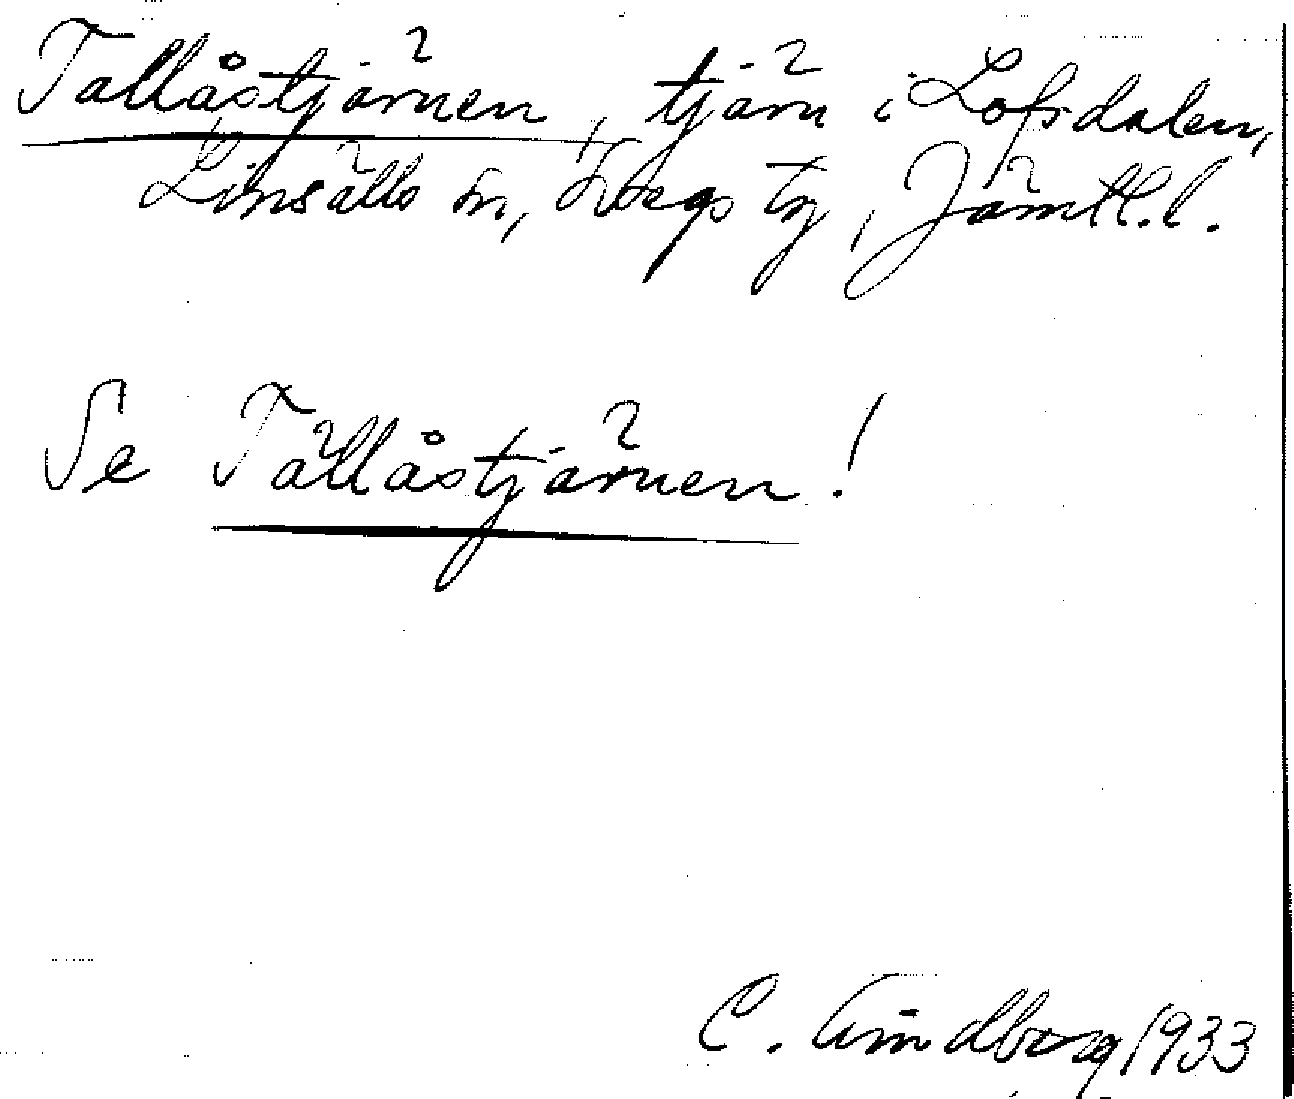 Tallåstjärnen, tjärn i Lofsdalen,
Linsälls sn, Svegs tg, Jämtl.l.
Se Tällåstjärnen!
C. Lindborg 1933